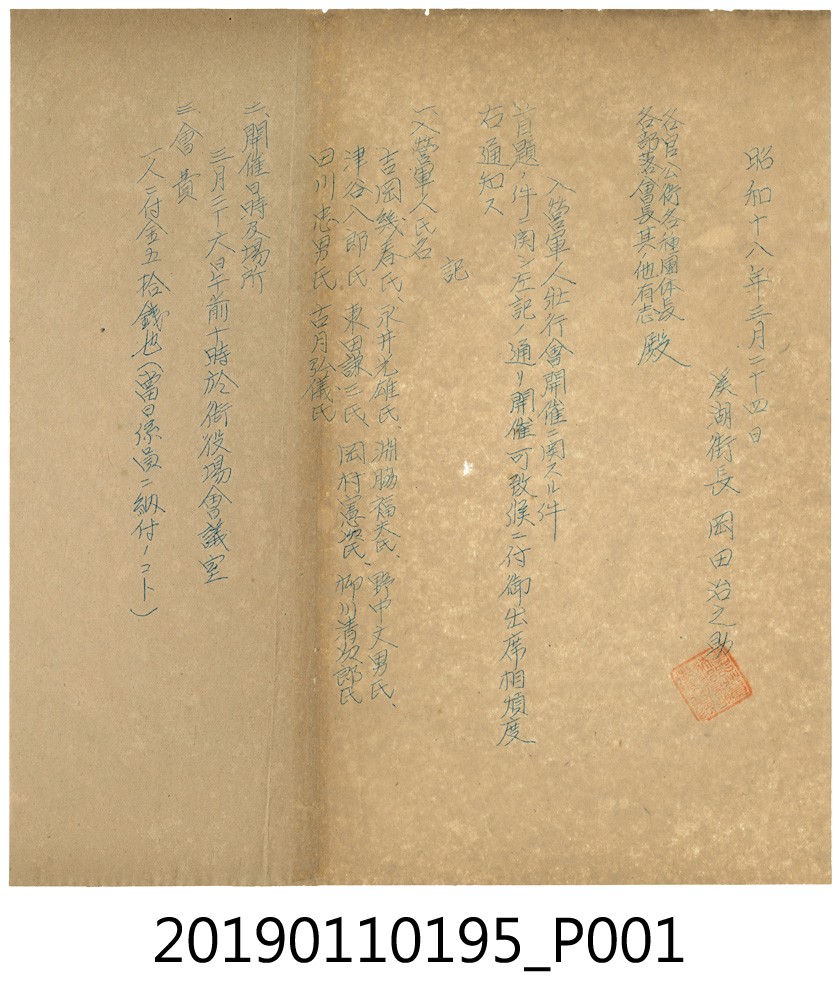 昭和十八年三月二十四日
溪湖街長 岡田治之助
各官公衙各種團体長
各部落會長其ノ他有志 殿
入營軍人壯行會開催ニ関スル件
首題ノ件ニ関シ左記ノ通リ開催可致候ニ付御出席相煩度
右通知ス
記
一、入營軍人氏名
吉岡幾春氏、永井光雄氏、淵脇福夫氏、野中文男氏、
津谷八郎氏、東田謙三氏、岡村憲次氏、柳川清次郎氏
田川忠男氏、古月弘儀氏
二、開催日時及場所
三月二十六日午前十時於街役場會議室
三、會費
一人ニ付金五拾錢也(當日係員ニ納付ノコト)
20190110195_P001